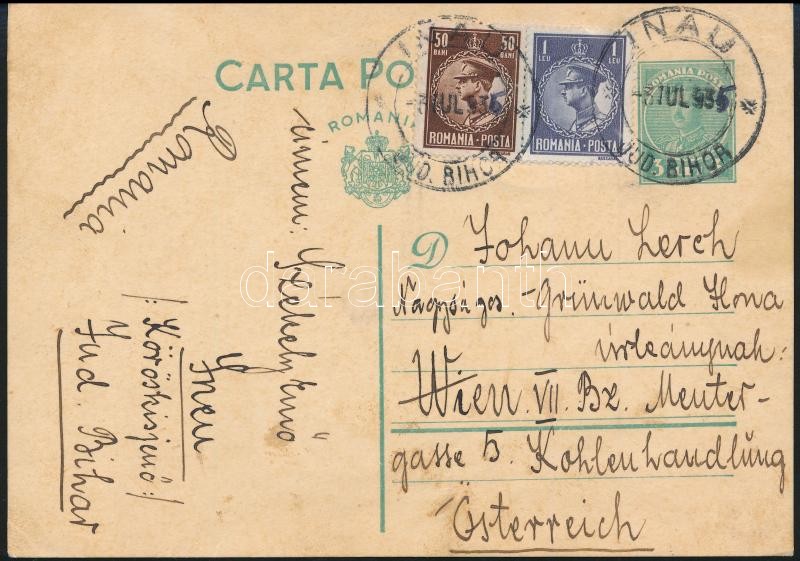 CARTA PO
ROMANIA
50 BANI 50 BANI
ROMANIA·POSTA
1 LEU 1 LEU
ROMANIA·POSTA
ROMANIA POSTA
INAU
JUD. BIHOR
INAU
-3 IUL 935
JUD. BIHOR
Romania
címem: Székely Ernő
Ineu
/: Köröskisjenő :/
Jud. Bihar
D Johann Lerch
Nagyságos. Grünwald Ilona
úrleánynak:
Wien. VII. Bz. Menter-
gasse 5. Kohlenhandlung
Österreich
darabanth